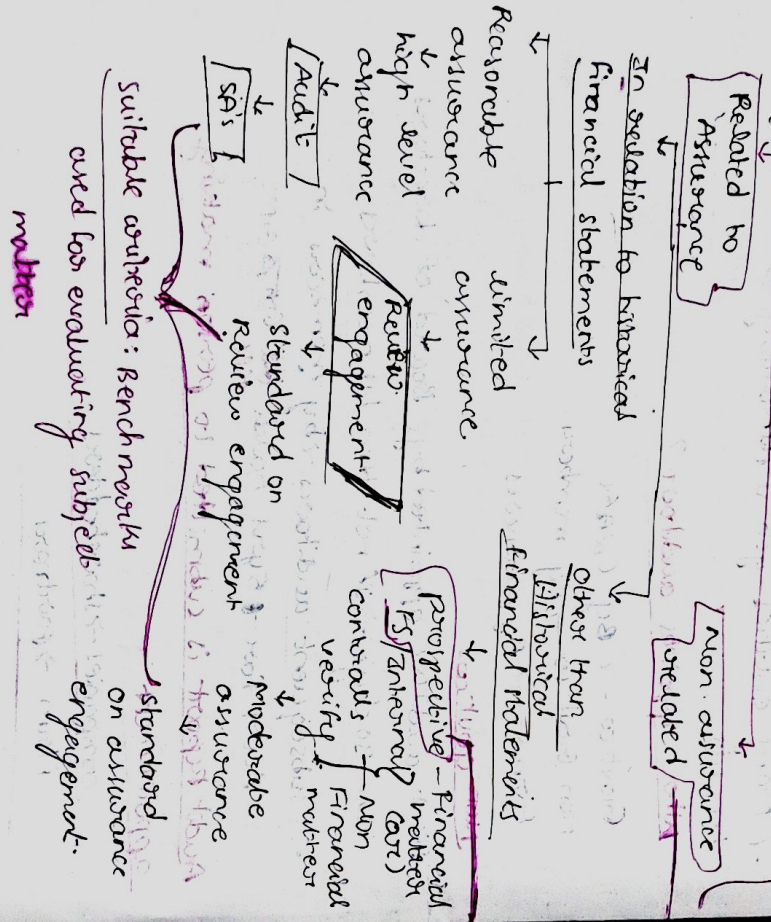 Related to
Assurance
Non. assurance
related
In relation to historical
financial statements
Other than
Historical
Financial statements
Reasonable
assurance
↓
high level
assurance
↓
Audit
↓
SA's
limited
assurance
↓
Review
engagement
↓
Standard on
Review engagement
↓
prospective - Financial
FS/Internal matter
controls (or)
verify Non
Financial
matter
↓
Moderate
assurance
↓
Standard
on assurance
engagement.
suitable criteria: Benchmarks
used for evaluating subject
matter